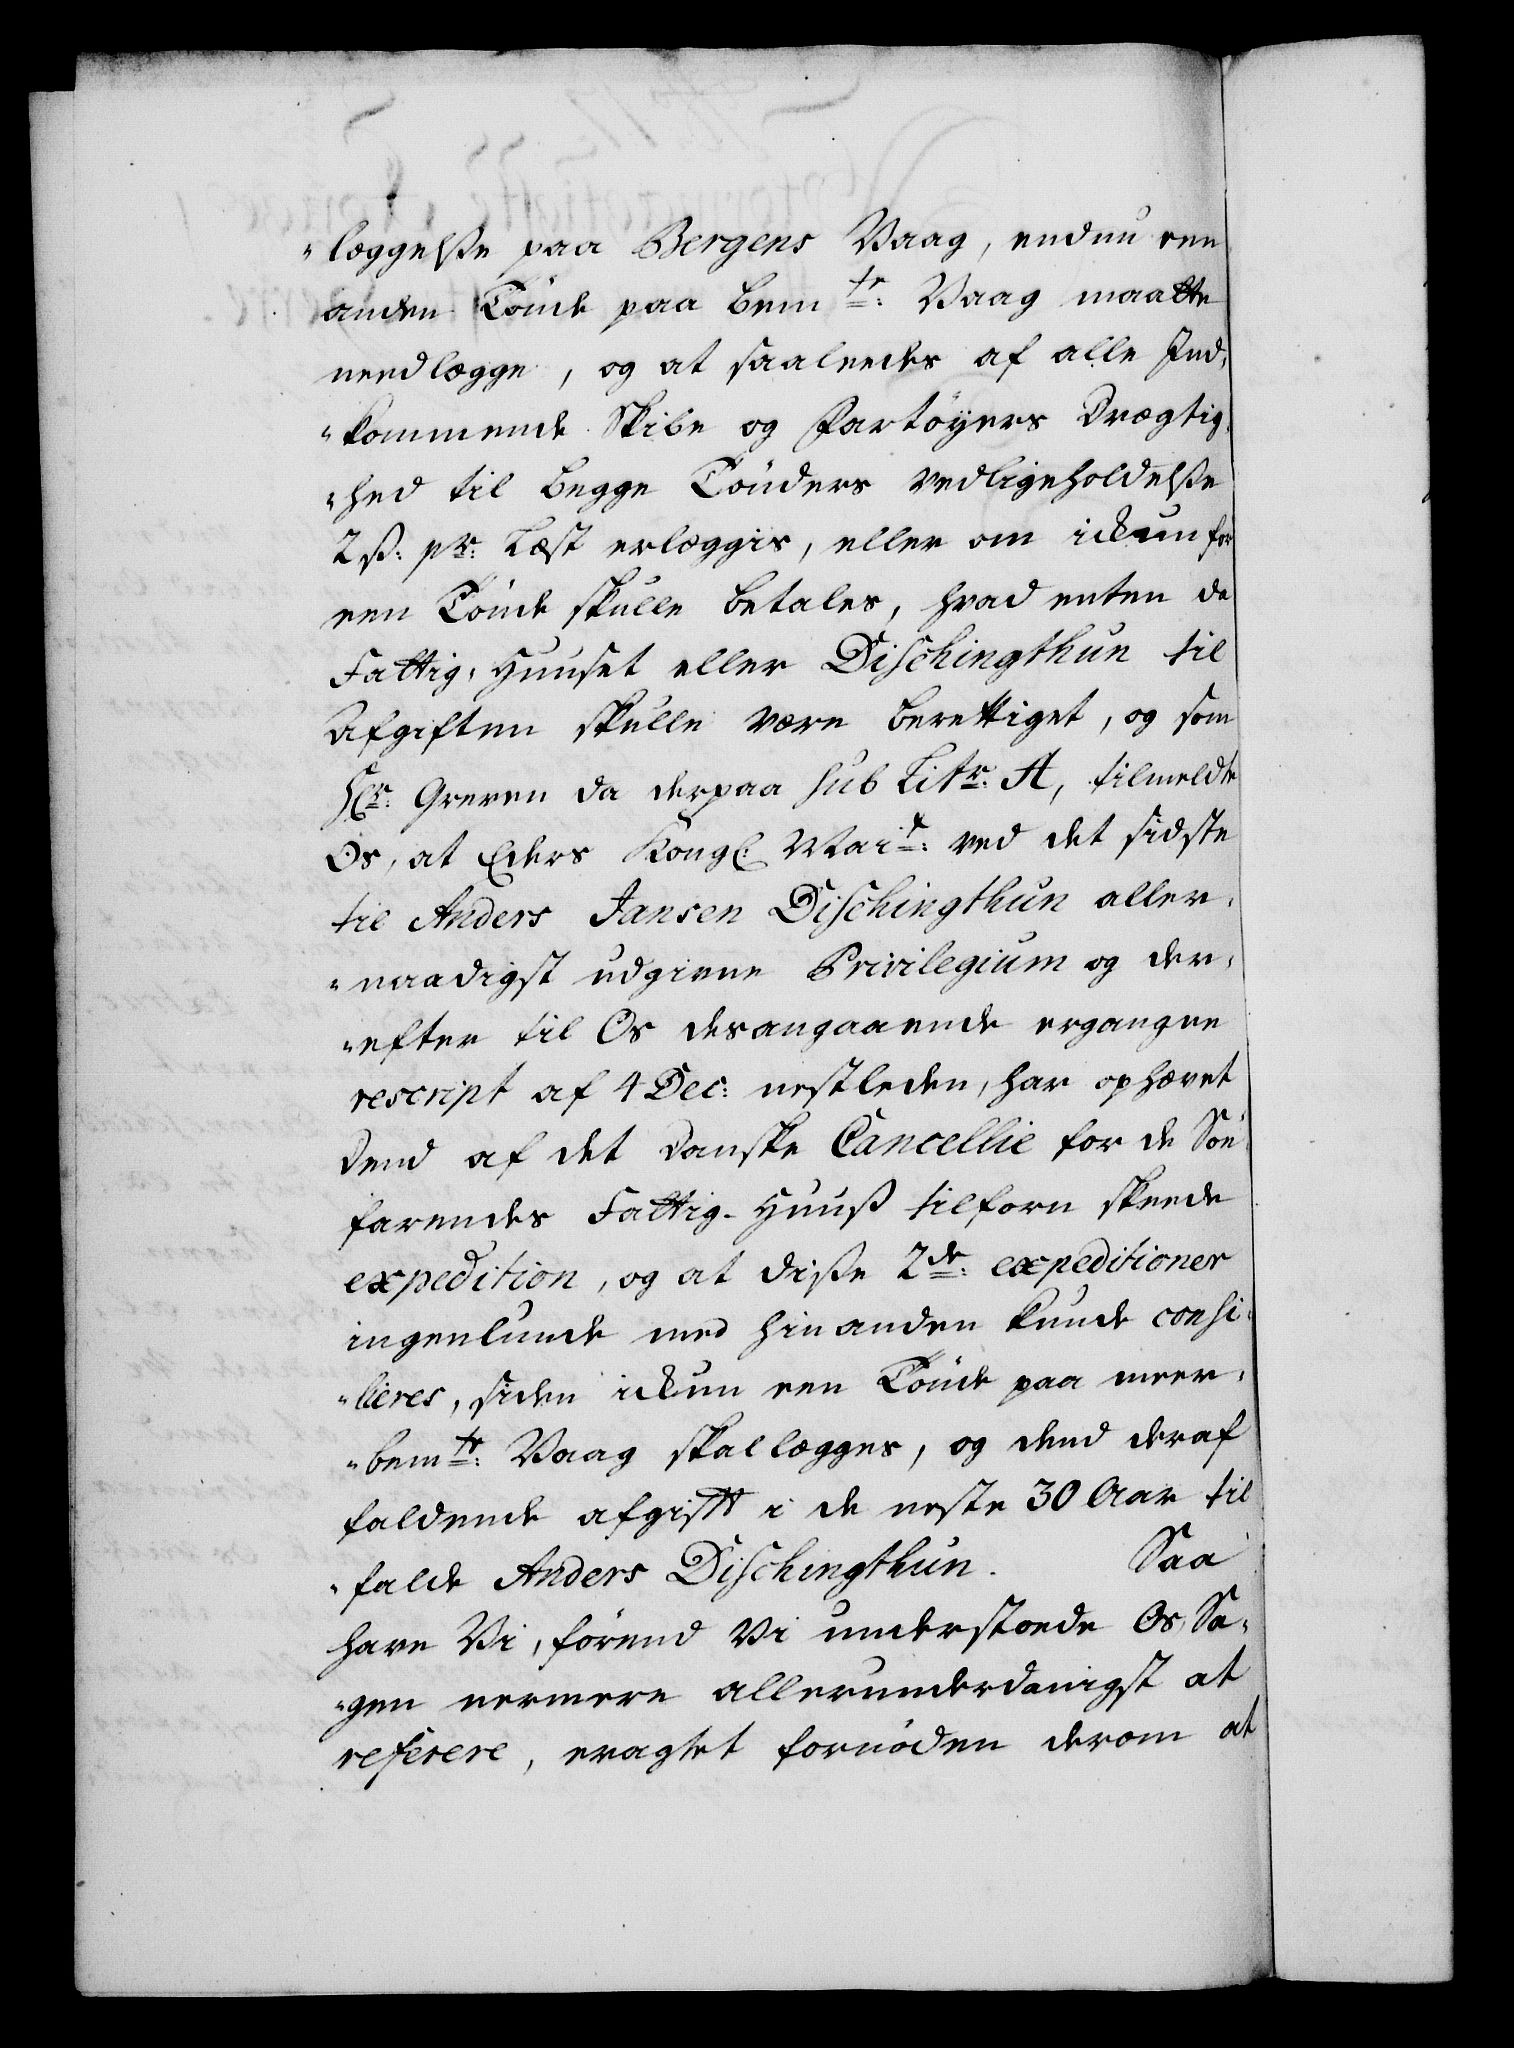 "læggelße paa Bergens Vaag, endnu een
anden Tönde paa bem<sup>te</sup>: Vaag maatte
needlægge, og at saaleedes af alle Ind,
"kommende Skibe og Fartöyers Drægtig,
"hed til begge Tönders vedligeholdelße
2 ß: pr: Læst erlæggis, eller om ickun for
een Tönde skulle betales, hvad enten da
Fattig, Huuset eller Dischingthun til
Afgiften skulle være berettiget, og som
Hr: Greven da derpaa sub Litr: A, tilmeldte
Os, at Eders Kongl: Mai<sup>t</sup>: ved det sidste
til Anders Jansen Dischingthun aller,
"naadigst udgivne Privilegium og der,
"efter til Os desangaaende ergangne
rescript af 4 Dec: nestleden, har ophævet
Dend af det Danske Cancellie for de Söe
farendes Fattig-Huuß tilforn skeede
expedition, og at diße 2<sup>de</sup>: expeditioner
ingenlunde med hinanden kunde consi,
"lieres, siden ickun een Tönde paa meer,
"bem<sup>te</sup>: Vaag skal lægges, og dend deraf
faldende afgifft i de neste 30 Aar til
"falde Anders Dischingthun. Saa
have Vi, förend Vi understoede Os, Sa,
"gen nermere allerunderdanigst at
referere, eragtet fornöden derom at